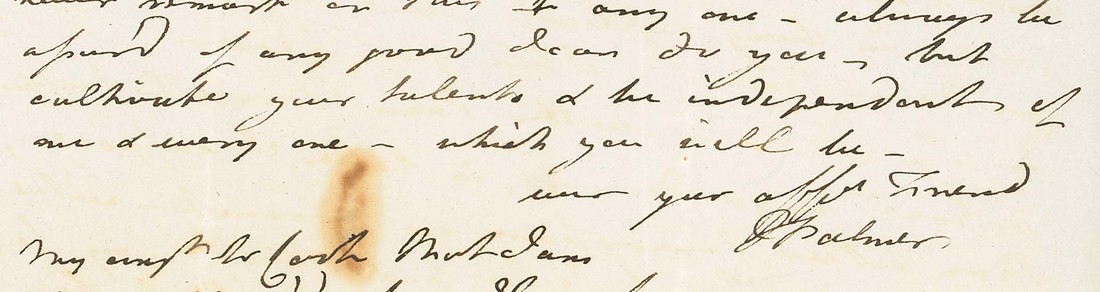 remark on this to any one - always be
assur'd of any good I can do you - but
cultivate your talents & be independent of
me & every one - which you will be -
ever your affet Friend
Palmer
My